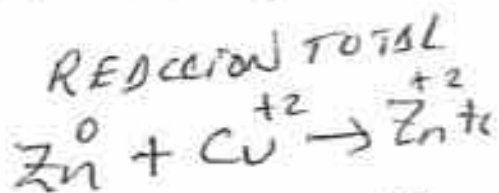 REACCION TOTAL
Zn⁰ + Cu⁺² → Zn⁺² +